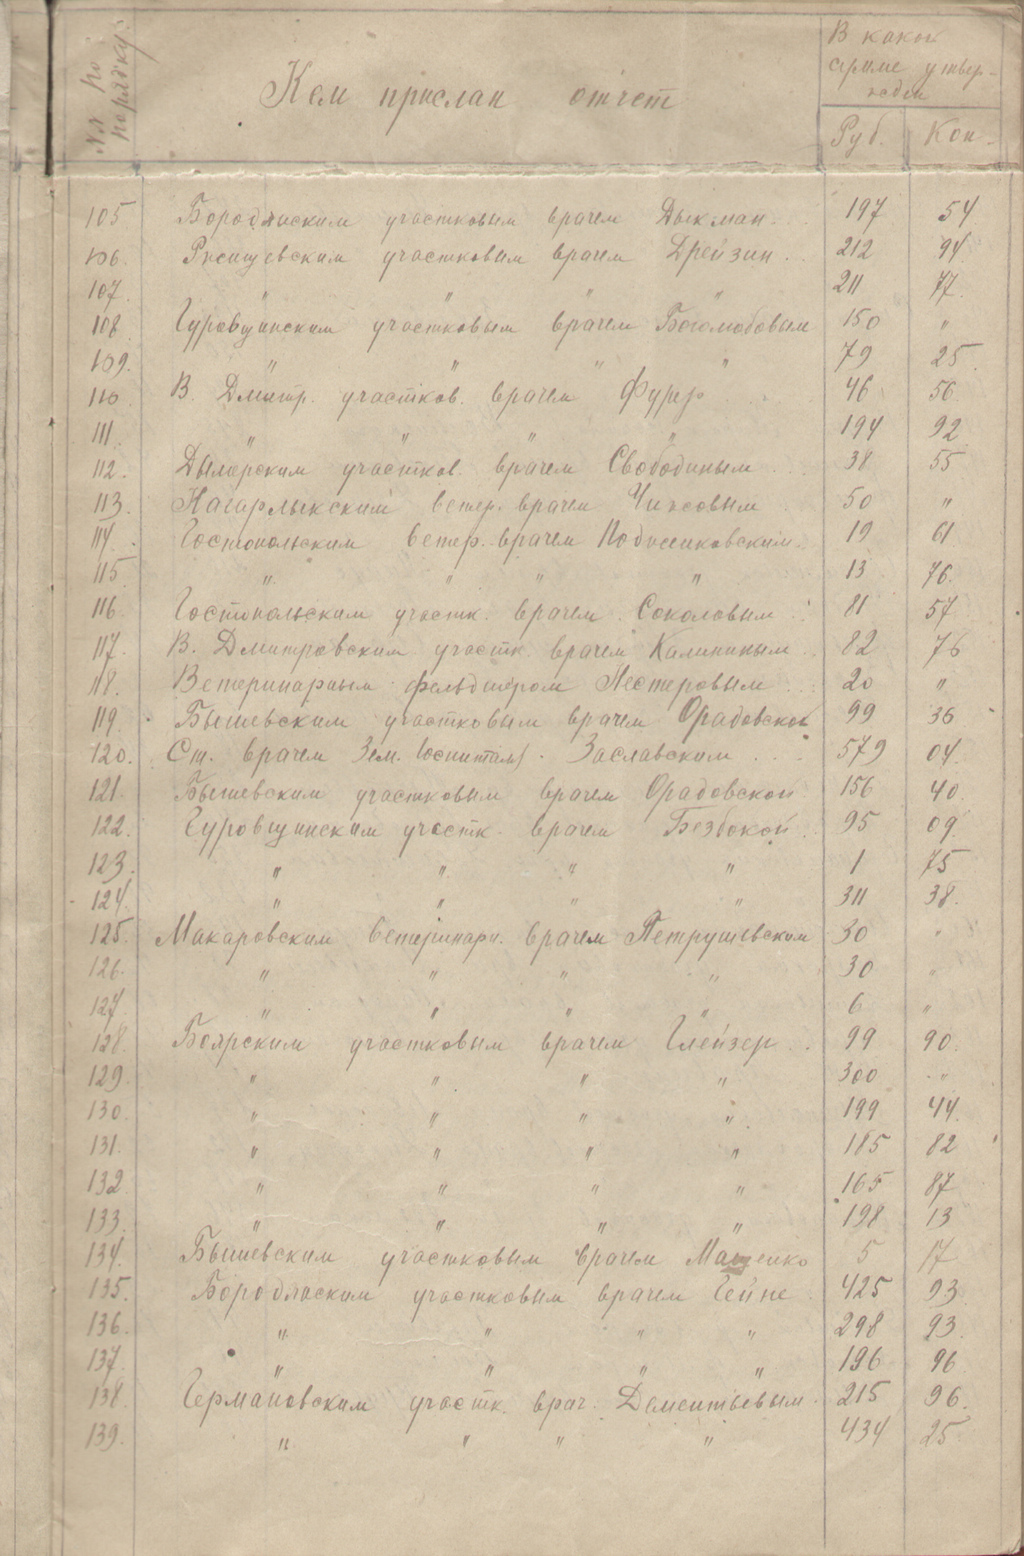 №№ по порядку
Кем прислан отчет
В какой сумме утверждён
Руб. Коп.
105 Бородянским участковым врачем Дикман. 197 54
106. Ржищевским участковым врачем Дрейзин. 212 94
107. " " " " 211 77.
108 Гуровщинским участковым врачем Боголюбовым 150 "
109. " " " " 79 25
110 В. Дмитр. участков. врачем Фурер 46 56
111. " " " " 194 92
112. Дымерским участков. врачем Свободиным 38 55
113. Кагарлыкским ветер. врачем Чижовым 50 "
114. Гостопольским ветер. врачем 19 61
115 " " " " 13 76.
116 Гостопольским участк. врачем Соколовым 81 57
117. В. Дмитровским участк. врачем Калининым 82 76
118. Ветеринарным фельдшером Нестеровым 20 "
119. Бышевским участковым врачем Орадовской 99 36
120. Ст. врачем Зем. госпиталя. Заславским 579 04.
121. Бышевским участковым врачем Орадовской 156 40
122. Гуровщинским участк. врачем Безбокой. 95 09.
123. " " " " 1 75
124. " " " " 311 38.
125. Макаровским ветеринарн. врачем Петрушевским 30 "
126. " " " " 30 "
127. " " " " 6 "
128. Боярским участковым врачем Глейзер 99 90.
129. " " " " 300 "
130. " " " " 199 44.
131. " " " " 185 82
132 " " " " 165 87
133. " " " " 198 13
134. Бышевским участковым врачем Мащенко 5 17
135. Бородянским участковым врачем Гейне 425 93
136. " " " " 298 93.
137. " " " " 196 96
138. Германовским участк. врач. Дементьевым. 215 96.
139. " " " " 434 25